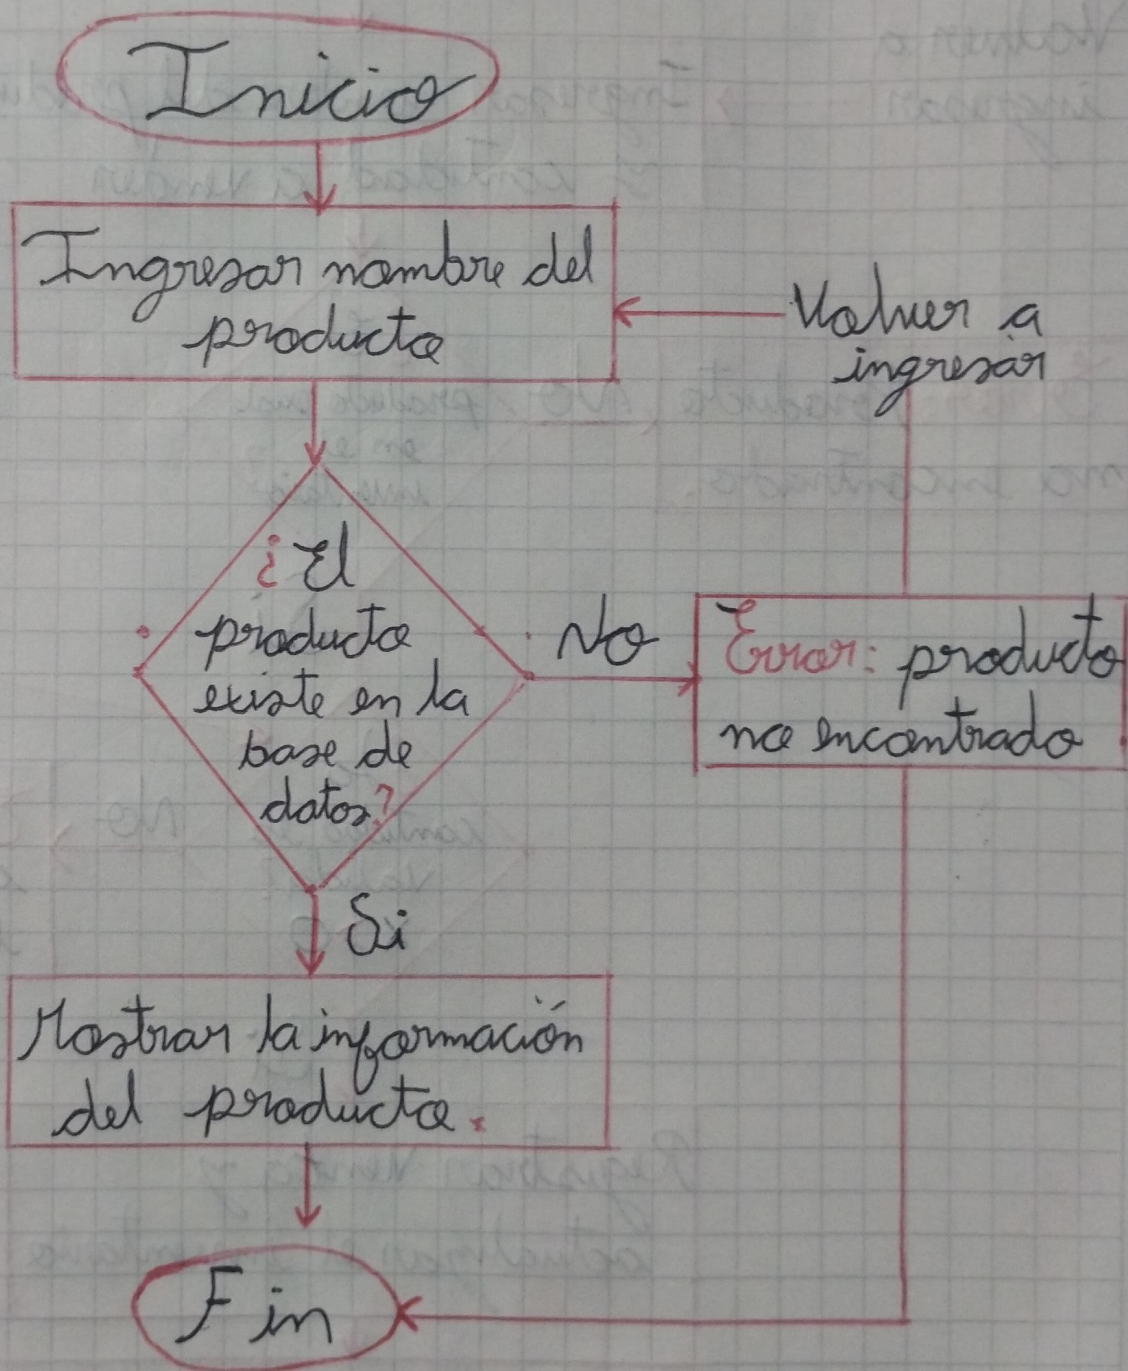 Inicio
Ingresar nombre del
producto
Volver a
ingresar
¿El
producto
existe en la
base de
datos?
No
Error: producto
no encontrado
Si
Mostrar la información
del producto.
Fin